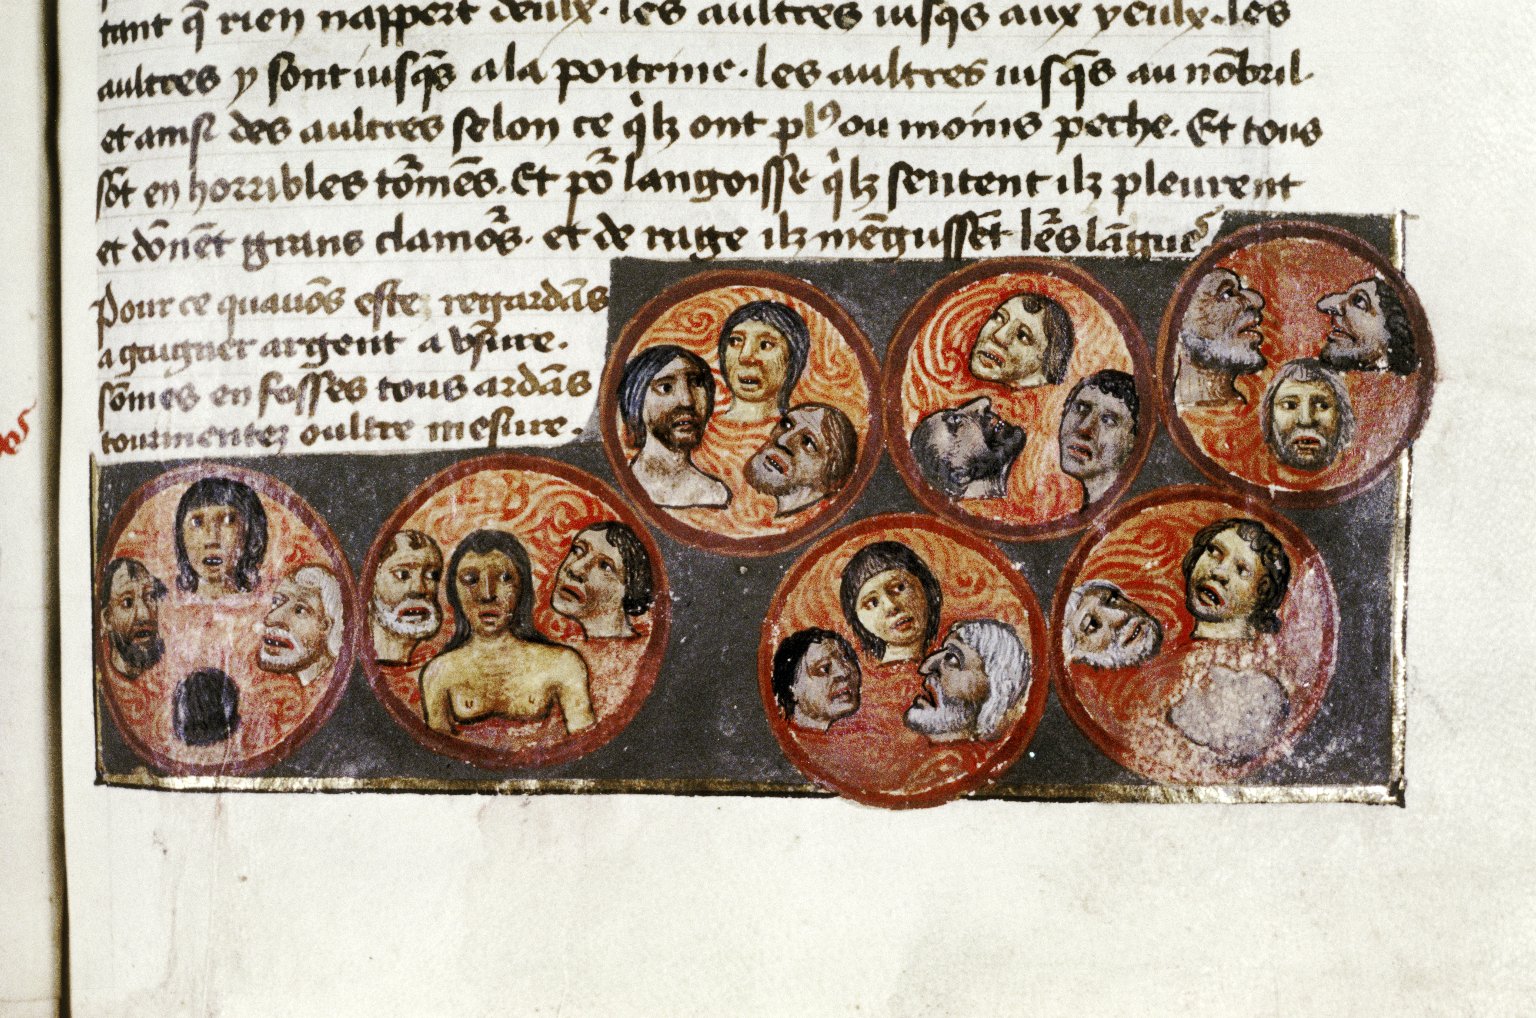 tant q̄ rien nappert deulx. les aultres iusq̄s aux yeulx. les
aultres y sont iusq̄s a la poitrine. les aultres iusq̄s au nōbril.
et ainsi des aultres selon ce q'lz ont pl9 ou moins peche. Et tous
sōt en horribles tormēs. Et por langoisse q'lz sentent ilz pleurent
et dōnēt grans clamors. et de rage ilz mēgussēt lers lāgues
Pour ce quauōs estez regardās
a gaigner argent a vsure.
sōmes en fosses tous ardās
tourmentez oultre mesure.